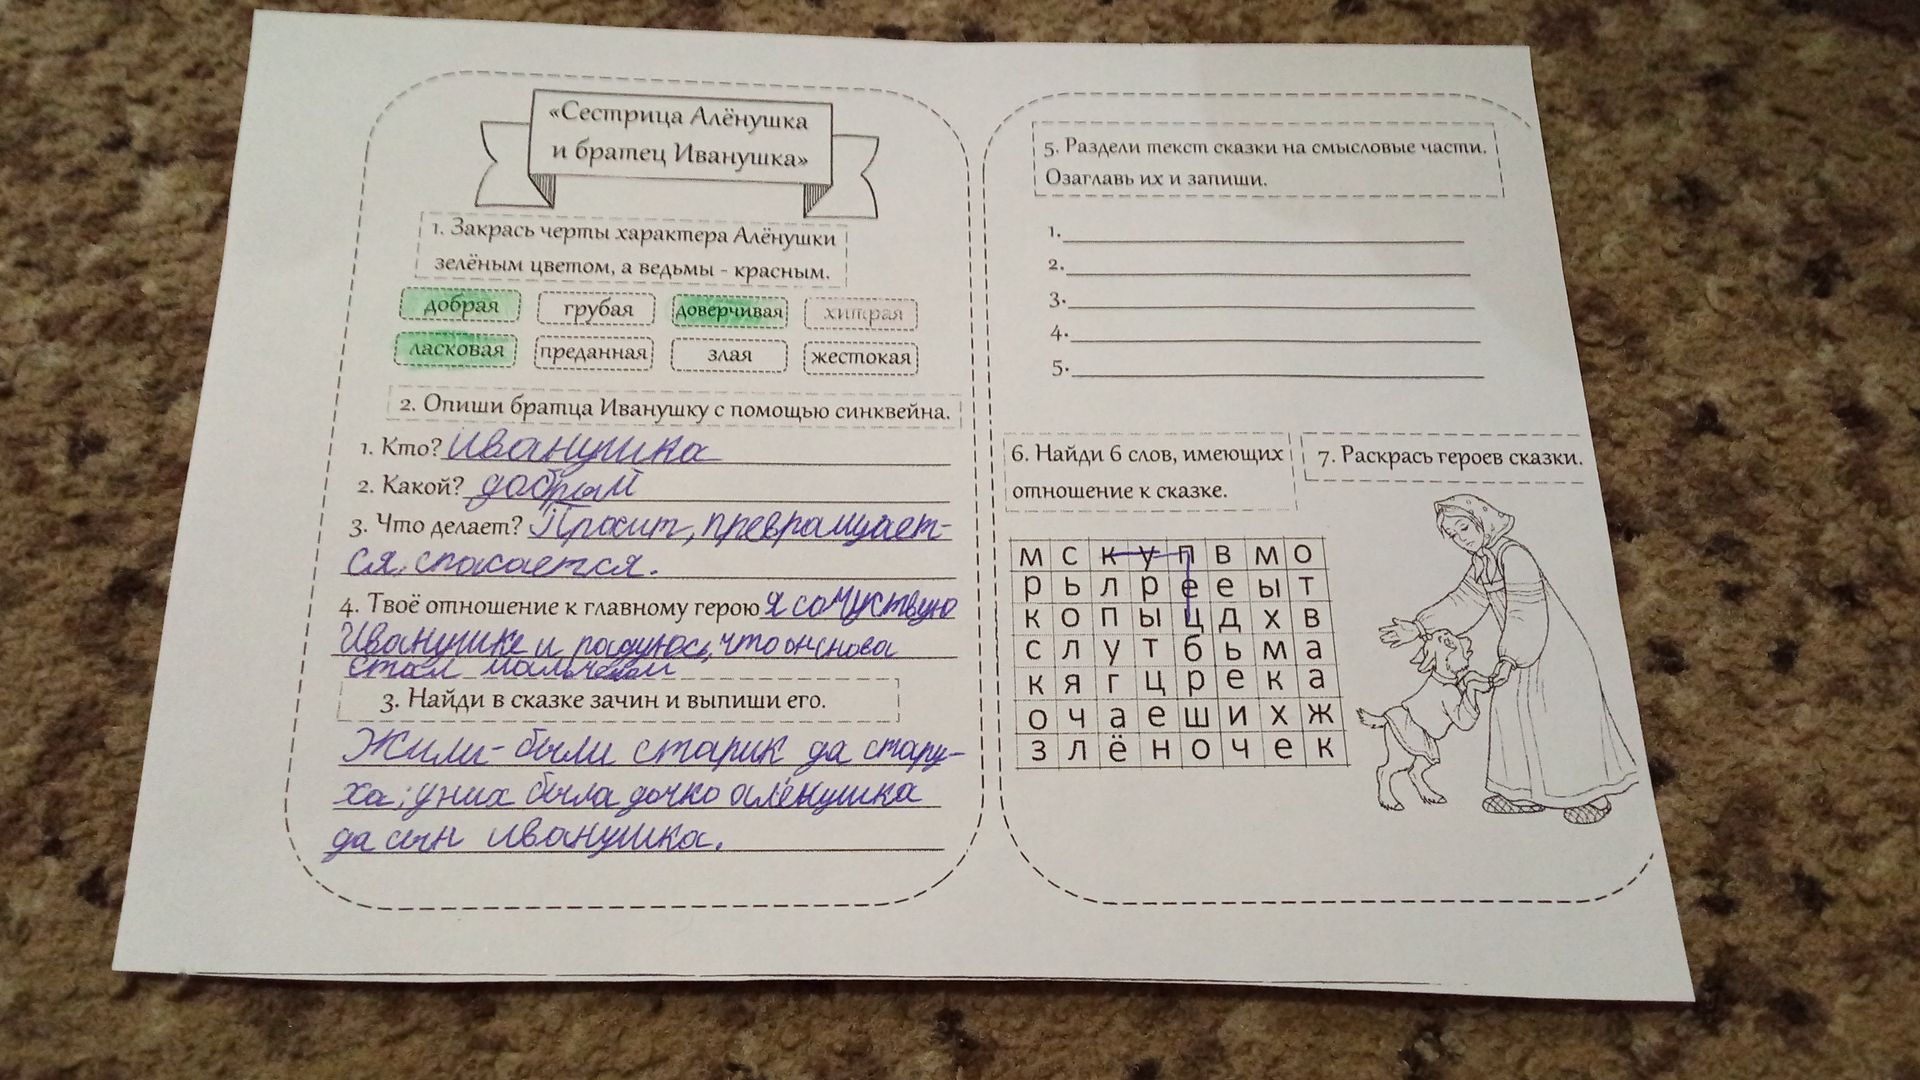 «Сестрица Алёнушка
и братец Иванушка»
1. Закрась черты характера Алёнушки
зелёным цветом, а ведьмы - красным.
добрая грубая доверчивая хитрая
ласковая преданная злая жестокая
2. Опиши братца Иванушку с помощью синквейна.
1. Кто? Иванушка
2. Какой? добрый
3. Что делает? Просит, превращает-
ся, спасается.
4. Твоё отношение к главному герою Я сочуствую
Иванушке и радуюсь, что он снова
стал мальчиком
3. Найди в сказке зачин и выпиши его.
Жили-были старик да стару-
ха; у них была дочка алёнушка
да сын иванушка.
5. Раздели текст сказки на смысловые части.
Озаглавь их и запиши.
1.
2.
3.
4.
5.
6. Найди 6 слов, имеющих
отношение к сказке.
м с к у п в м о
р ь л р е е ы т
к о п ы ц д х в
с л у т б ь м а
к я г ц р е к а
о ч а е ш и х ж
з л ё н о ч е к
7. Раскрась героев сказки.